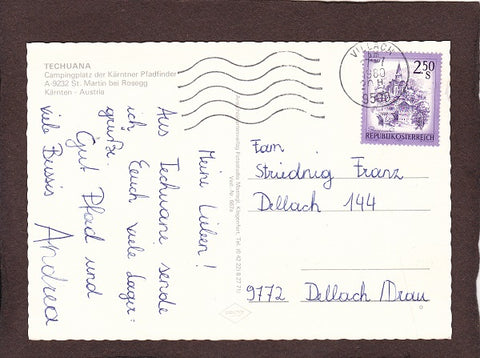 TECHUANA
Campingplatz der Kärntner Pfadfinder
A-9232 St. Martin bei Rosegg
Kärnten - Austria
Meine Lieben!
Aus Techuana sende
ich Euch viele Lager-
grüße.
Gut Pfad und
viele Bussis
Andrea
VILLACH
1980
9500
2.50
S
REPUBLIK ÖSTERREICH
Fam.
Striednig Franz
Dellach 144
9772 Dellach/Drau